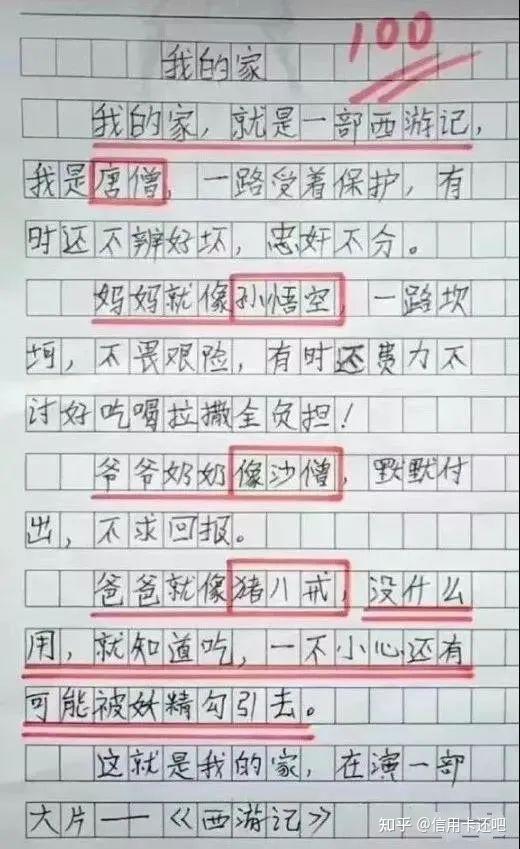 100
我的家
我的家，就是一部西游记，
我是唐僧，一路受着保护，有
时还不辨好坏，忠奸不分。
妈妈就像孙悟空，一路坎
坷，不畏艰险，有时还费力不
讨好吃喝拉撒全负担！
爷爷奶奶像沙僧，默默付
出，不求回报。
爸爸就像猪八戒，没什么
用，就知道吃，一不小心还有
可能被妖精勾引去。
这就是我的家，在演一部
大片——《西游记》
知乎 @信用卡还吧